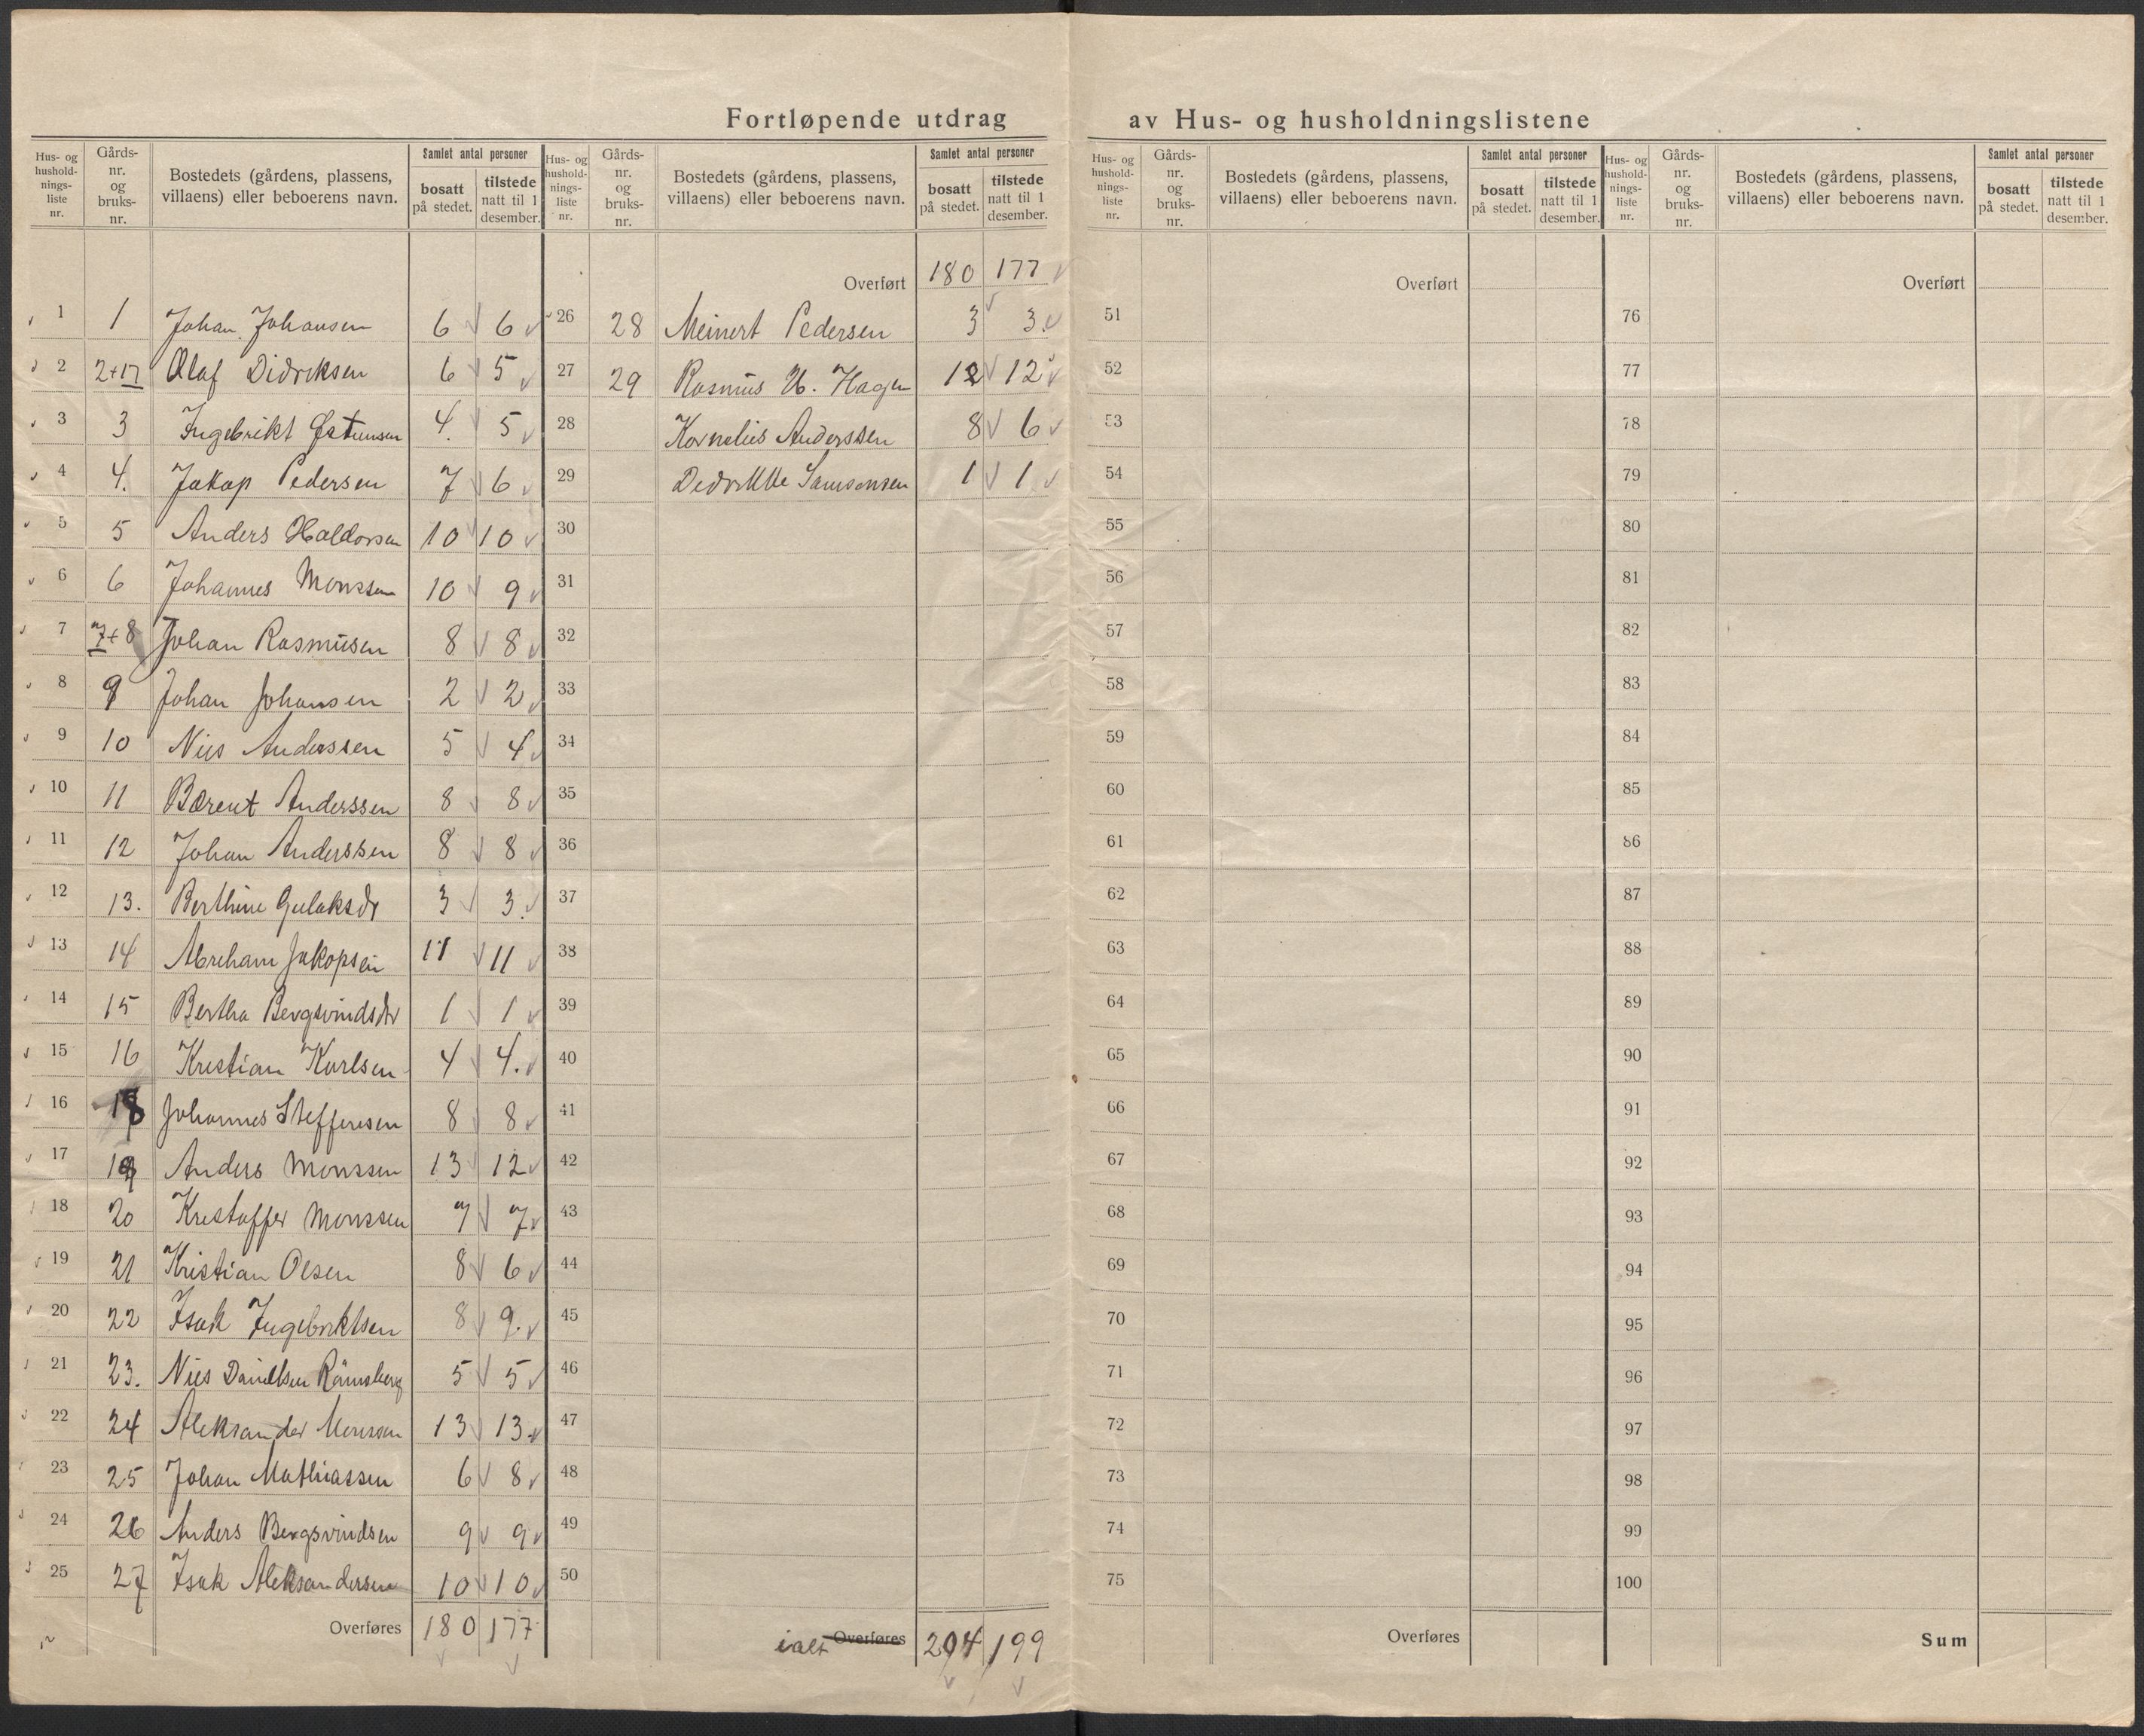 Fortløpende utdrag av Hus- og husholdningslistene
Hus- og hushold- nings- liste nr. Gårds- nr. og bruks- nr. Bostedets (gårdens, plassens, villaens) eller beboerens navn. Samlet antal personer bosatt på stedet. tilstede natt til 1 desember.
1 1 Johan Johansen 6 6
2 2+17 Olaf Didriksen 6 5
3 3 Ingebrikt 4. 5
4 4. Jakop Pedersen 7 6
5 5 Anders Haldorsen 10 10
6 6 Johannes Monssen 10 9
7 7+8 Johan Rasmusen 8 8
8 9 Johan Johansen 2 2
9 10 Nils Anderssen 5 4
10 11 Bærent Anderssen 8 8
11 12 Johan Anderssen 8 8
12 13. Berthine Gulaksdr 3 3.
13 14 Abreham Jakopsen 11 11
14 15 Bertha Bergsvindsdr 1 1
15 16 Kristian Karlsen 4 4.
16 18 Johannes Steffensen 8 8
17 19 Anders Monssen 13 12
18 20 Kristoffer Monssen 7 7
19 21 Kristian Olsen 8 6
20 22 Isak Ingebriktsen 8 9.
21 23. Nils Daniellsen 5 5
22 24 Aleksander Monssen 13 13
23 25 Johan Mathiassen 6 8
24 26 Anders Bergsvindsen 9 9
25 27 Isak Aleksandersen 10 10
Overføres 180 177
Hus- og hushold- nings- liste nr. Gårds- nr. og bruks- nr. Bostedets (gårdens, plassens, villaens) eller beboerens navn. Samlet antal personer bosatt på stedet. tilstede natt til 1 desember.
Overført 180 177
26 28 Meinert Pedersen 3 3.
27 29 Rasmus H. Hagen 12 12
28 Kornelius Anderssen 8 6
29 Samsonsen 1 1
30
31
32
33
34
35
36
37
38
39
40
41
42
43
44
45
46
47
48
49
50
ialt Overføres 204 199
Hus- og hushold- nings- liste nr. Gårds- nr. og bruks- nr. Bostedets (gårdens, plassens, villaens) eller beboerens navn. Samlet antal personer bosatt på stedet. tilstede natt til 1 desember.
Overført
51
52
53
54
55
56
57
58
59
60
61
62
63
64
65
66
67
68
69
70
71
72
73
74
75
Overføres
Hus- og hushold- nings- liste nr. Gårds- nr. og bruks- nr. Bostedets (gårdens, plassens, villaens) eller beboerens navn. Samlet antal personer bosatt på stedet. tilstede natt til 1 desember.
Overført
76
77
78
79
80
81
82
83
84
85
86
87
88
89
90
91
92
93
94
95
96
97
98
99
100
Sum